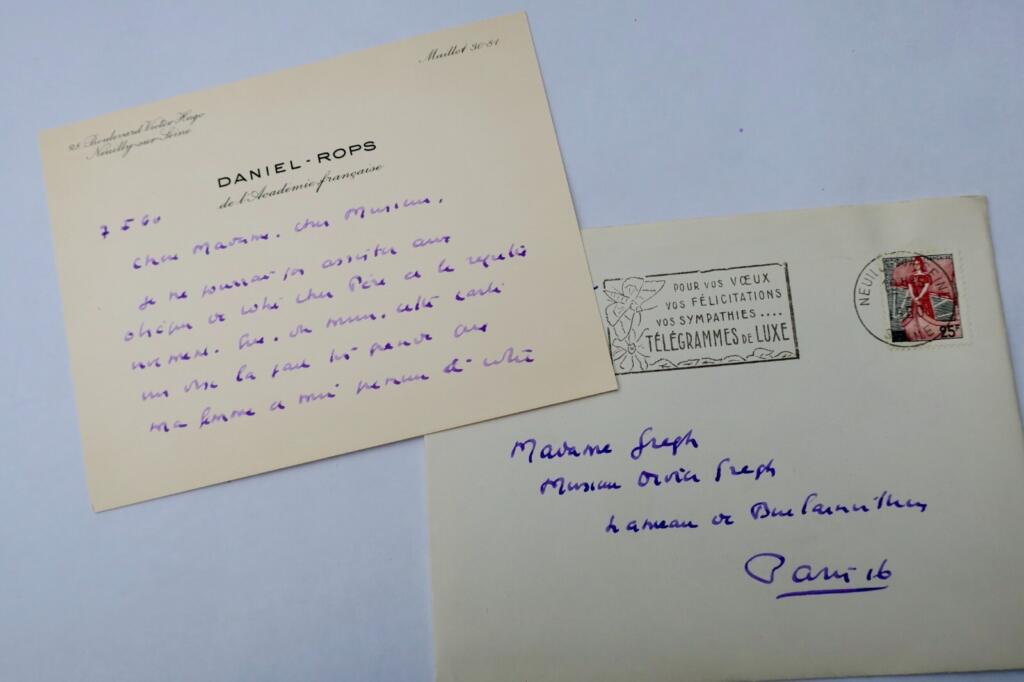 Maillot 30-81
Boulevard Victor Hugo
Neuilly-sur-Seine
DANIEL-ROPS
de l'Académie française
7 5 60
Chère Madame, cher Monsieur,
Je ne pourrai pas assister aux
obsèques de votre cher Père et le regrette
vivement. Que, du moins, cette carte
vous dise la part très grande que
ma femme et moi prenons à votre
POUR VOS VŒUX
VOS FÉLICITATIONS
VOS SYMPATHIES....
TÉLÉGRAMMES DE LUXE
25F
Madame Gregh
Monsieur Gregh
Hameau de Boulainvilliers
Paris 16